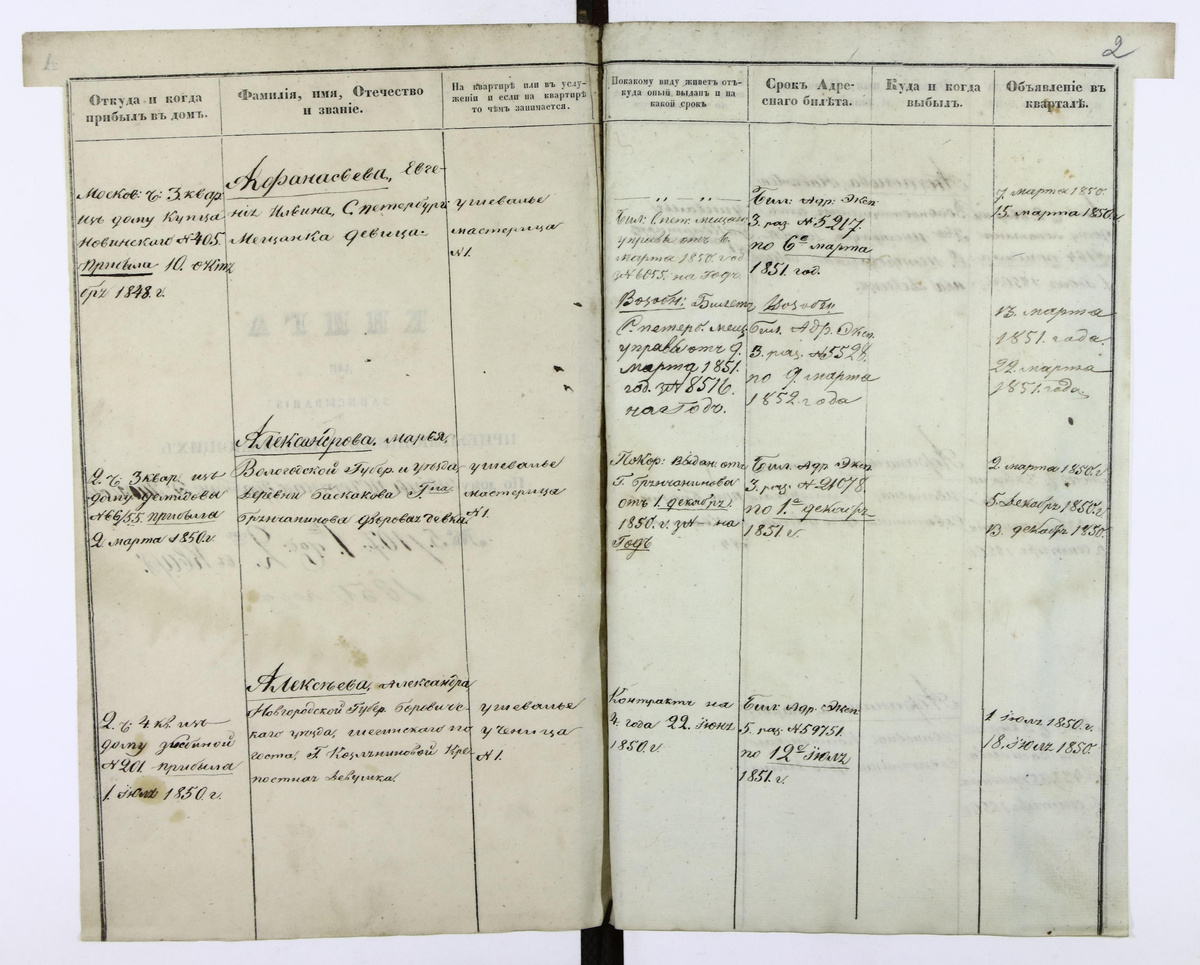 2
Откуда и когда
прибылъ въ домъ.
Фамилія, имя, Отечество
и званіе.
На квартирѣ или въ услу-
женіи и если на квартирѣ
то чѣмъ занимается.
Покакому виду живетъ отъ-
куда оный выданъ и на
какой срокъ
Срокъ Адре-
снаго билѣта.
Куда и когда
выбылъ.
Объявленіе въ
кварталѣ.
Москов: ч: 3 квар
изъ дому Купца
Новинскаго № 405.
Прибыла 10. октя
бря 1848. г.
Афанасьева, Евге-
нія Ильина, С. петербург:
Мещанка девица.
у швальѣ
мастерица
№ 1.
„ „
Бил: С пет: мещан:
управы отъ 6.
марта 1850. год
за № 6655. на Годъ.
Возобн: Билетъ
С. петерб. мещ.
управы отъ 9.
марта 1851.
год. за № 8516.
на Годъ.
Бил: Адр: Эксп
3. раз. № 5217.
по 6е марта
1851. год.
Возобн:
Бил. Адр. Эксп.
3. раз. № 5528.
по 9. марта
1852. года
7. марта 1850.
15. марта 1850. г
13. марта
1851. года.
22. марта
1851. года
2. ч. 3 квар. изъ
дому Демидова
№ 66/55. прибыла
2. марта 1850. г.
Александрова, Марья,
Вологодской Губер. и уѣзда
деревни Баскакова Гна
Брянчанинова дворовая девка.
у швальѣ
мастерица
№ 1.
Покор: выдан: отъ
Г. Брянчанинова
отъ 1. декабря.
1850. г. за № на
Годъ
Бил. Адр. Эксп
3. раз. № 21078.
по 1е декабря
1851 г.
2. марта 1850. г
5. Декабря 1850. г.
13. декабря 1850.
2. ч. 4 кв. изъ
дому
№ 201 прибыла
1. Июля 1850. г.
Алексѣева, Александра
Новгородской Губер. Боровиче-
скаго уѣзда,
госта, Г. Козляниновой Кре-
постная Девушка.
у швальѣ
ученица
№ 1.
Контрактъ на
4. года 22. Июня
1850. г
Бил: Адр: Эксп
5. раз. № 59751.
по 12е Июля
1851. г.
1 Июля 1850. г.
18. Июля 1850.